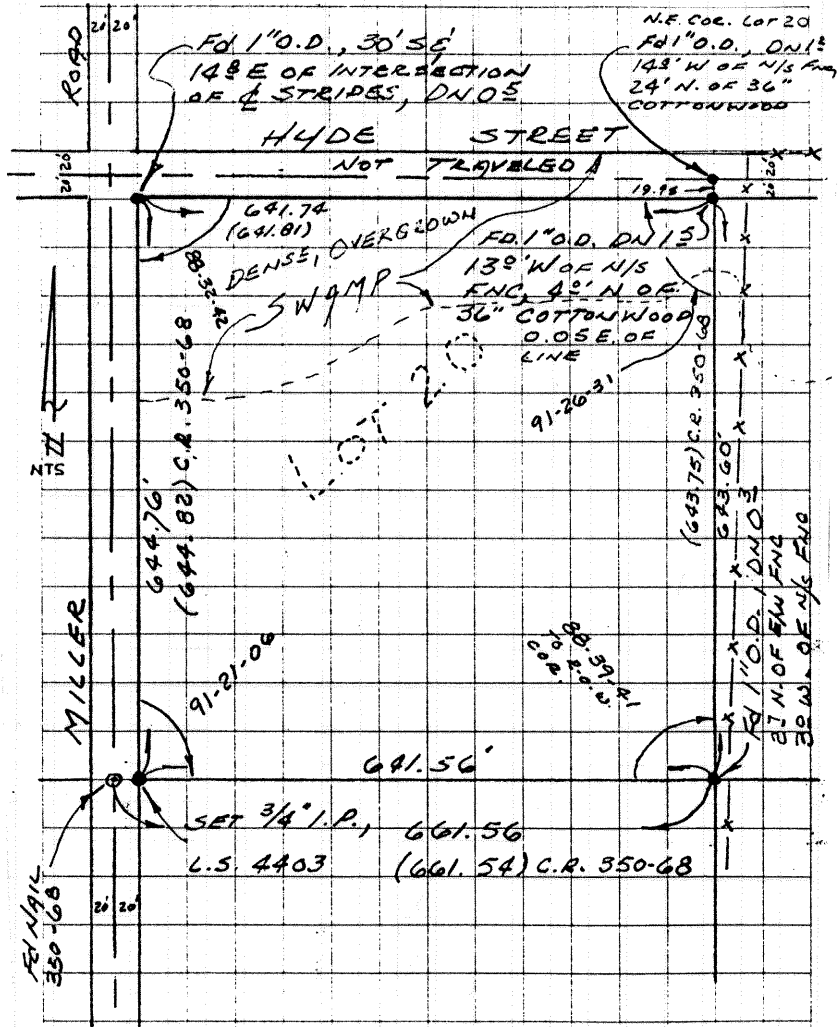 20' 20'
ROAD
Fd 1" O.D., 30' S &
14⁸ E OF INTERSECTION
OF ℄ STRIDES, DN 0⁵
N.E. COR. LOT 20
Fd 1" O.D., DN 1²
14⁸' W OF N/S FNC,
24' N. OF 36"
COTTONWOOD
HYDE STREET
NOT TRAVELED
20' 20'
20' 20'
19.98
641.74
(641.81)
88-32-42
DENSE, OVERGROWN
SWAMP
FD. 1" O.D. DN 1⁵
13⁰' W OF N/S
FNC, 4⁰' N OF
36" COTTONWOOD
0.05 E. OF
LINE
91-26-31
LOT 20
NTS
644.76'
(644.82) C.R. 350-68
(643.75) C.R. 350-68
643.60'
MILLER
91-21-06
88-39-41
TO R.O.W.
COR.
Fd 1" O.D., DN 0³
2⁷ N. OF E/W FNC
3⁰ W. OF N/S FNC
641.56'
SET 3/4" I.P.,
L.S. 4403
661.56
(661.54) C.R. 350-68
Fd NAIL
350-68
20' 20'